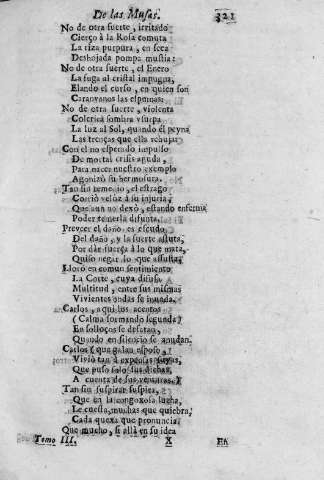 De las Musas. 321
No de otra suerte, irritado
Cierço à la Rosa comuta
La riza purpura, en seca
Deshojada pompa mustia:
No de otra suerte, el Enero
La fuga al cristal impugna,
Elando el curso, en quien son
Carambanos las espumas:
No de otra suerte, violenta
Colerica sombra vsurpa
La luz al Sol, quando èl peyna
Las trenças que ella rebuja:
Con el no esperado impulso
De mortal crisis aguda,
Para nacer nuestro exemplo
Agonizò su hermosura.
Tan sin remedio, el estrago
Corriò veloz à su injuria,
Que aun no dexò, estando enferma
Poder tenerla difunta.
Preveer el daño es escudo
Del daño, y la suerte astuta,
Por dàr fuerça à lo que mata,
Quiso negar lo que assusta.
Llorò en comun sentimiento
La Corte, cuya difusa
Multitud, entre sus mismas
Vivientes ondas se inunda.
Carlos, aqui los acentos
(Calma formando segunda)
En solloços se desatan,
Quando en silencio se anudan.
Carlos (que galan esposo,
Viviò tan à expensas suyas,
Que puso solo sus dichas,
A cuenta de sus venturas.)
Tan sin suspirar suspira,
Que en la congoxosa lucha,
Le cuesta, muchas que quiebra,
Cada quexa que pronuncia.
Que mucho, si allà en su idea
Tomo III. X En